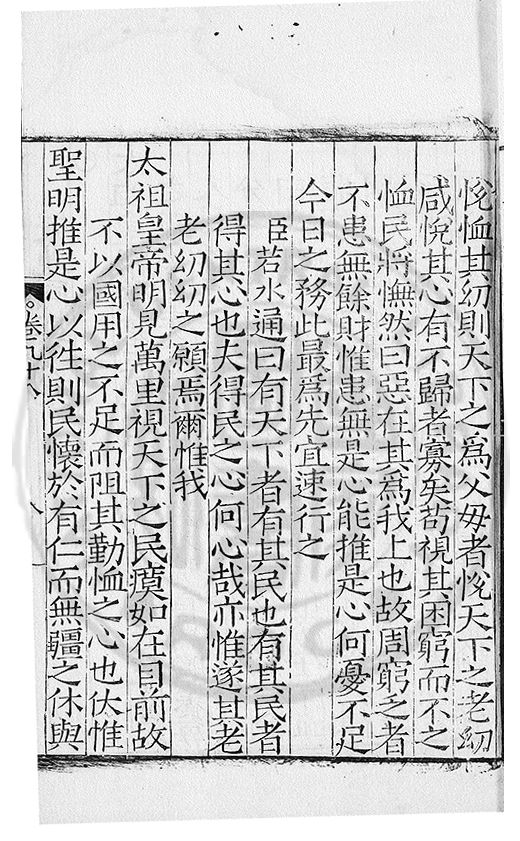 悅恤其幼則天下之為父母者悅天下之老幼
咸悅其心有不歸者寡矣苟視其困窮而不之
恤民將憮然曰惡在其為我上也故周窮之者
不患無餘財惟患無是心能推是心何憂不足
今日之務此最為先宜速行之
臣若水通曰有天下者有其民也有其民者
得其心也夫得民之心何心哉亦惟遂其老
老幼幼之願焉爾惟我
太祖皇帝明見萬里視天下之民瘼如在目前故
不以國用之不足而阻其勤恤之心也伏惟
聖明推是心以往則民懷於有仁而無疆之休與
卷九十八
八